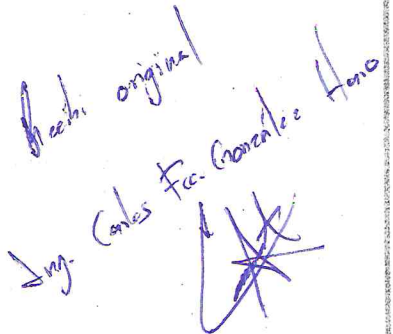 Recibi original
Ing. Carlos Fco. González Haro